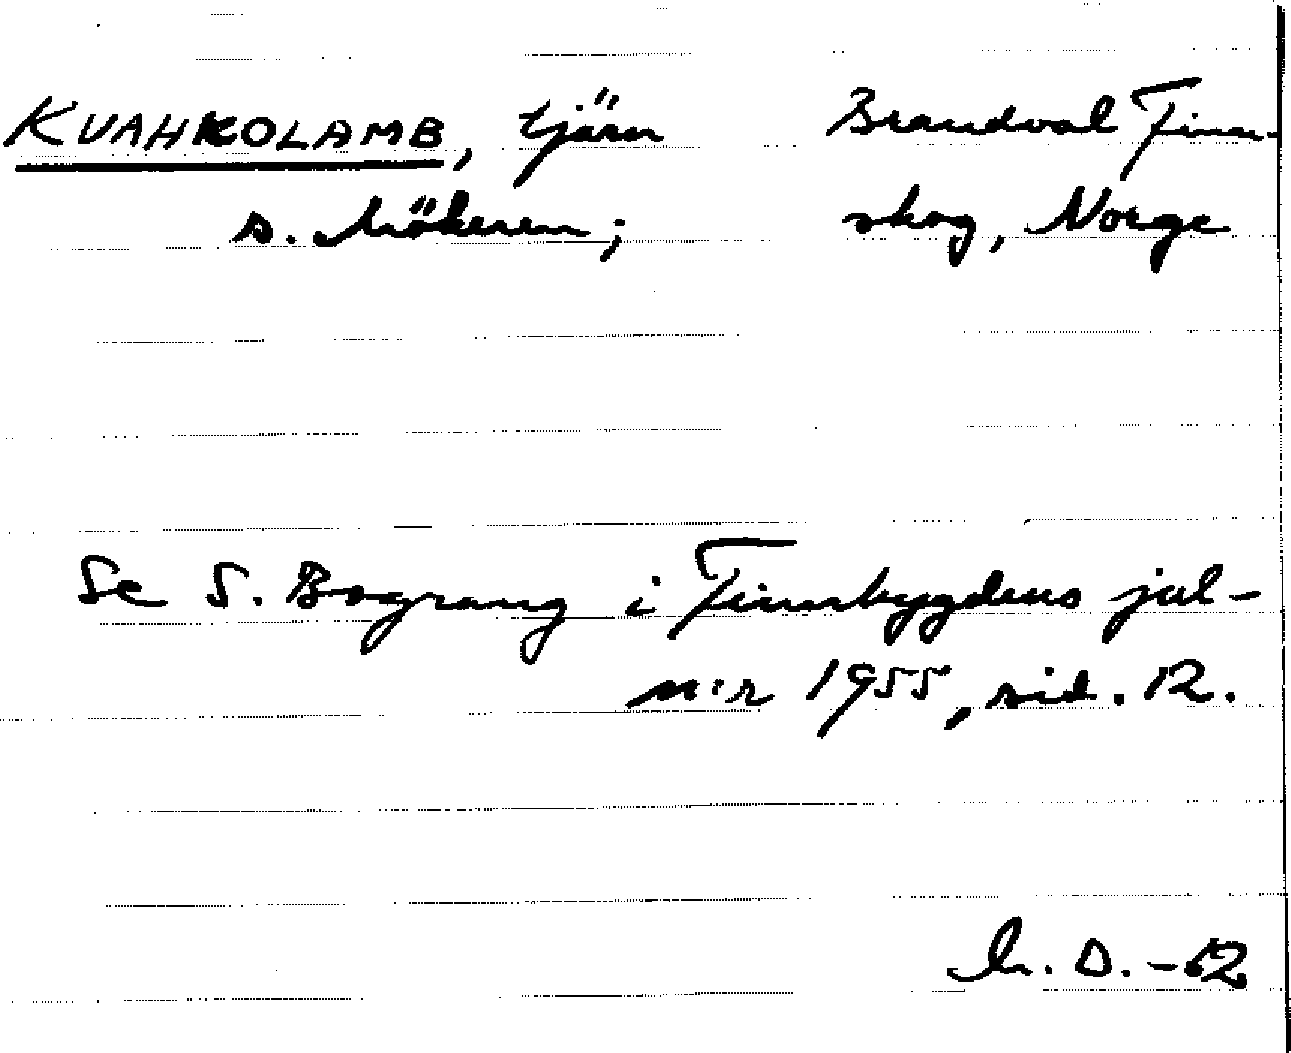 KUAHKOLAMB, tjärn Brandval Finn-
s. Mökeren; skog, Norge
Se S. Bograng i Finnbygdens jul-
n:r 1955, sid. 12.
D. -62